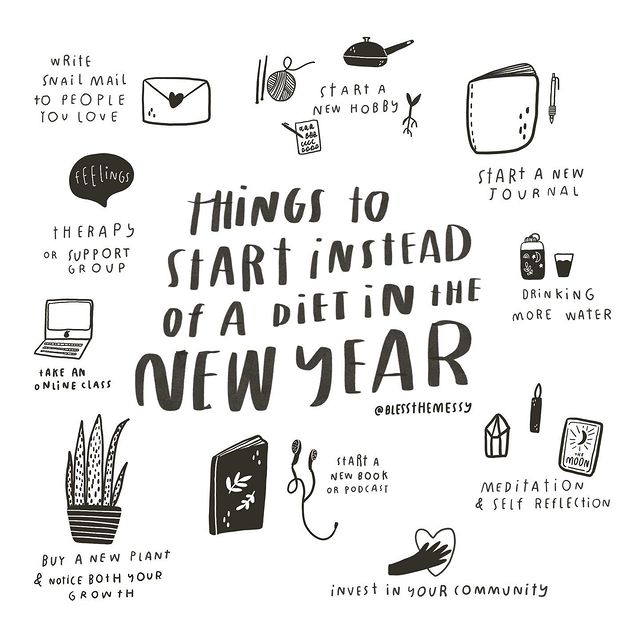 THINGS TO
START INSTEAD
OF A DIET IN THE
NEW YEAR
@BLESSTHEMESSY
WRITE
SNAIL MAIL
TO PEOPLE
YOU LOVE
START A
NEW HOBBY
START A NEW
JOURNAL
FEELINGS
THERAPY
OR SUPPORT
GROUP
DRINKING
MORE WATER
TAKE AN
ONLINE CLASS
START A
NEW BOOK
OR PODCAST
THE
MOON
MEDITATION
& SELF REFLECTION
BUY A NEW PLANT
& NOTICE BOTH YOUR
GROWTH
INVEST IN YOUR COMMUNITY